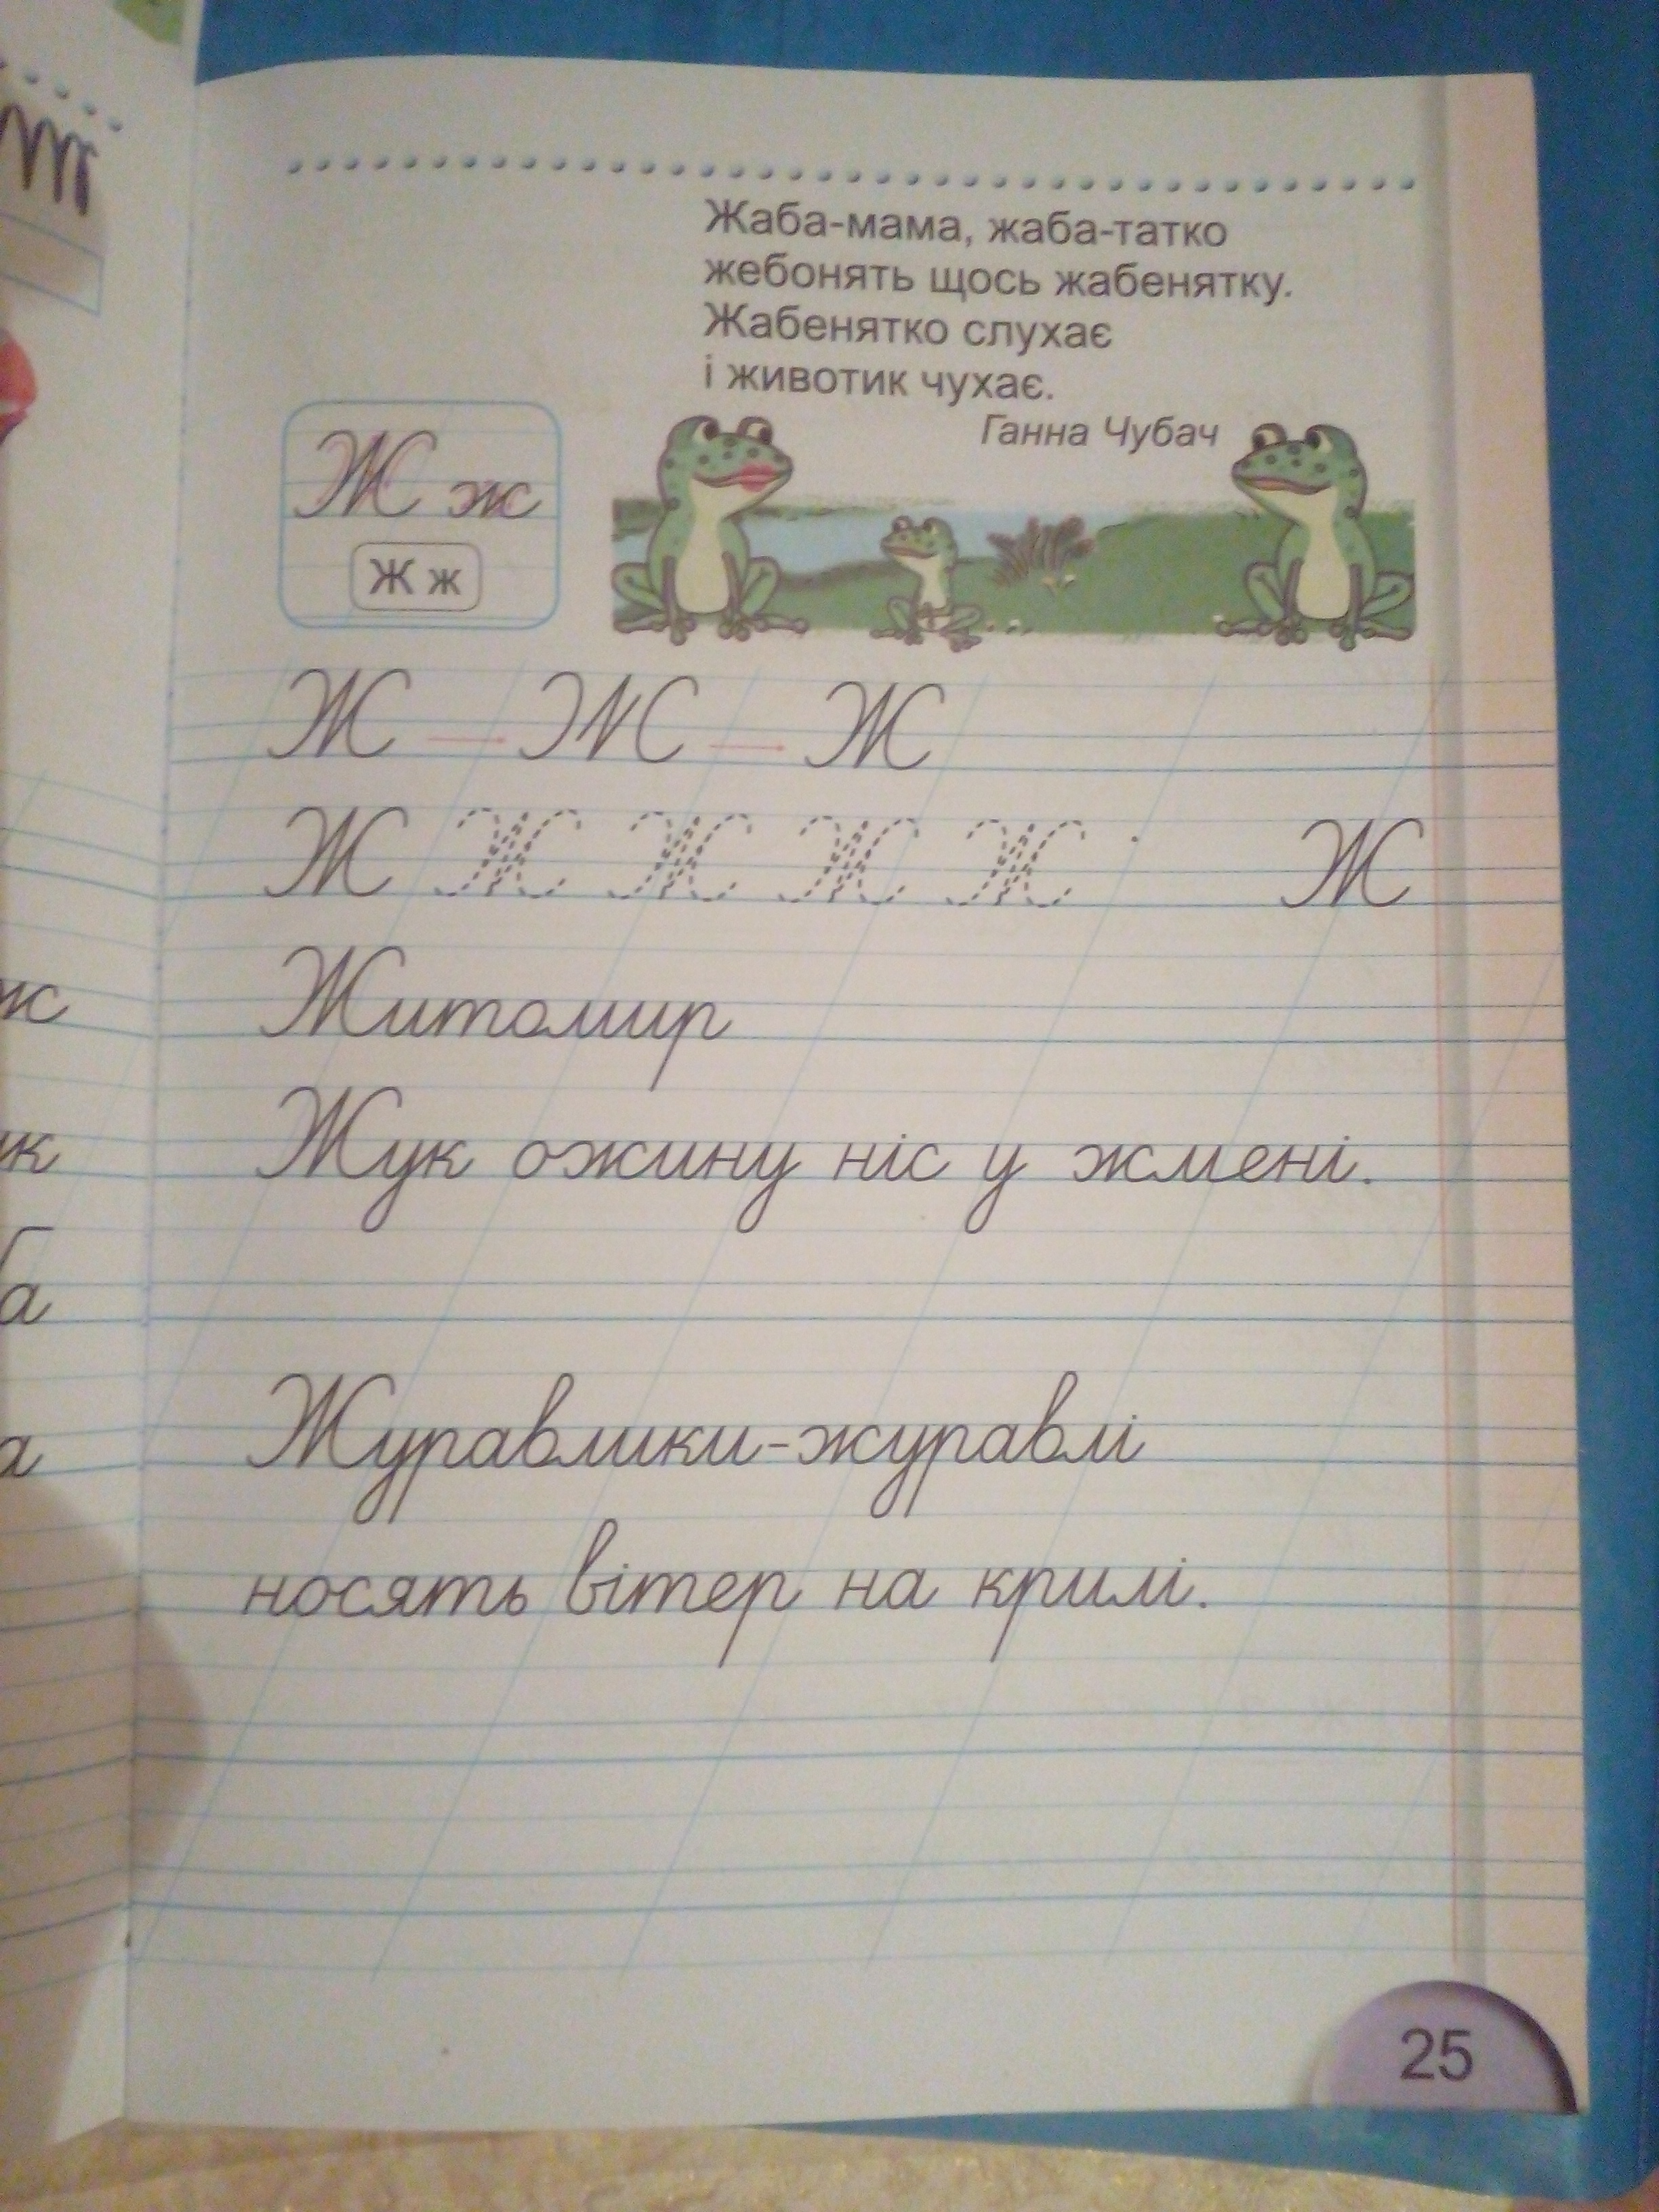 Жаба-мама, жаба-татко
жебонять щось жабенятку.
Жабенятко слухає
і животик чухає.
Ганна Чубач
Ж ж
Ж ж
Ж Ж Ж
Ж Ж Ж Ж Ж Ж
Житомир
Жук ожину ніс у жмені.
Журавлики-журавлі
носять вітер на крилі.
25